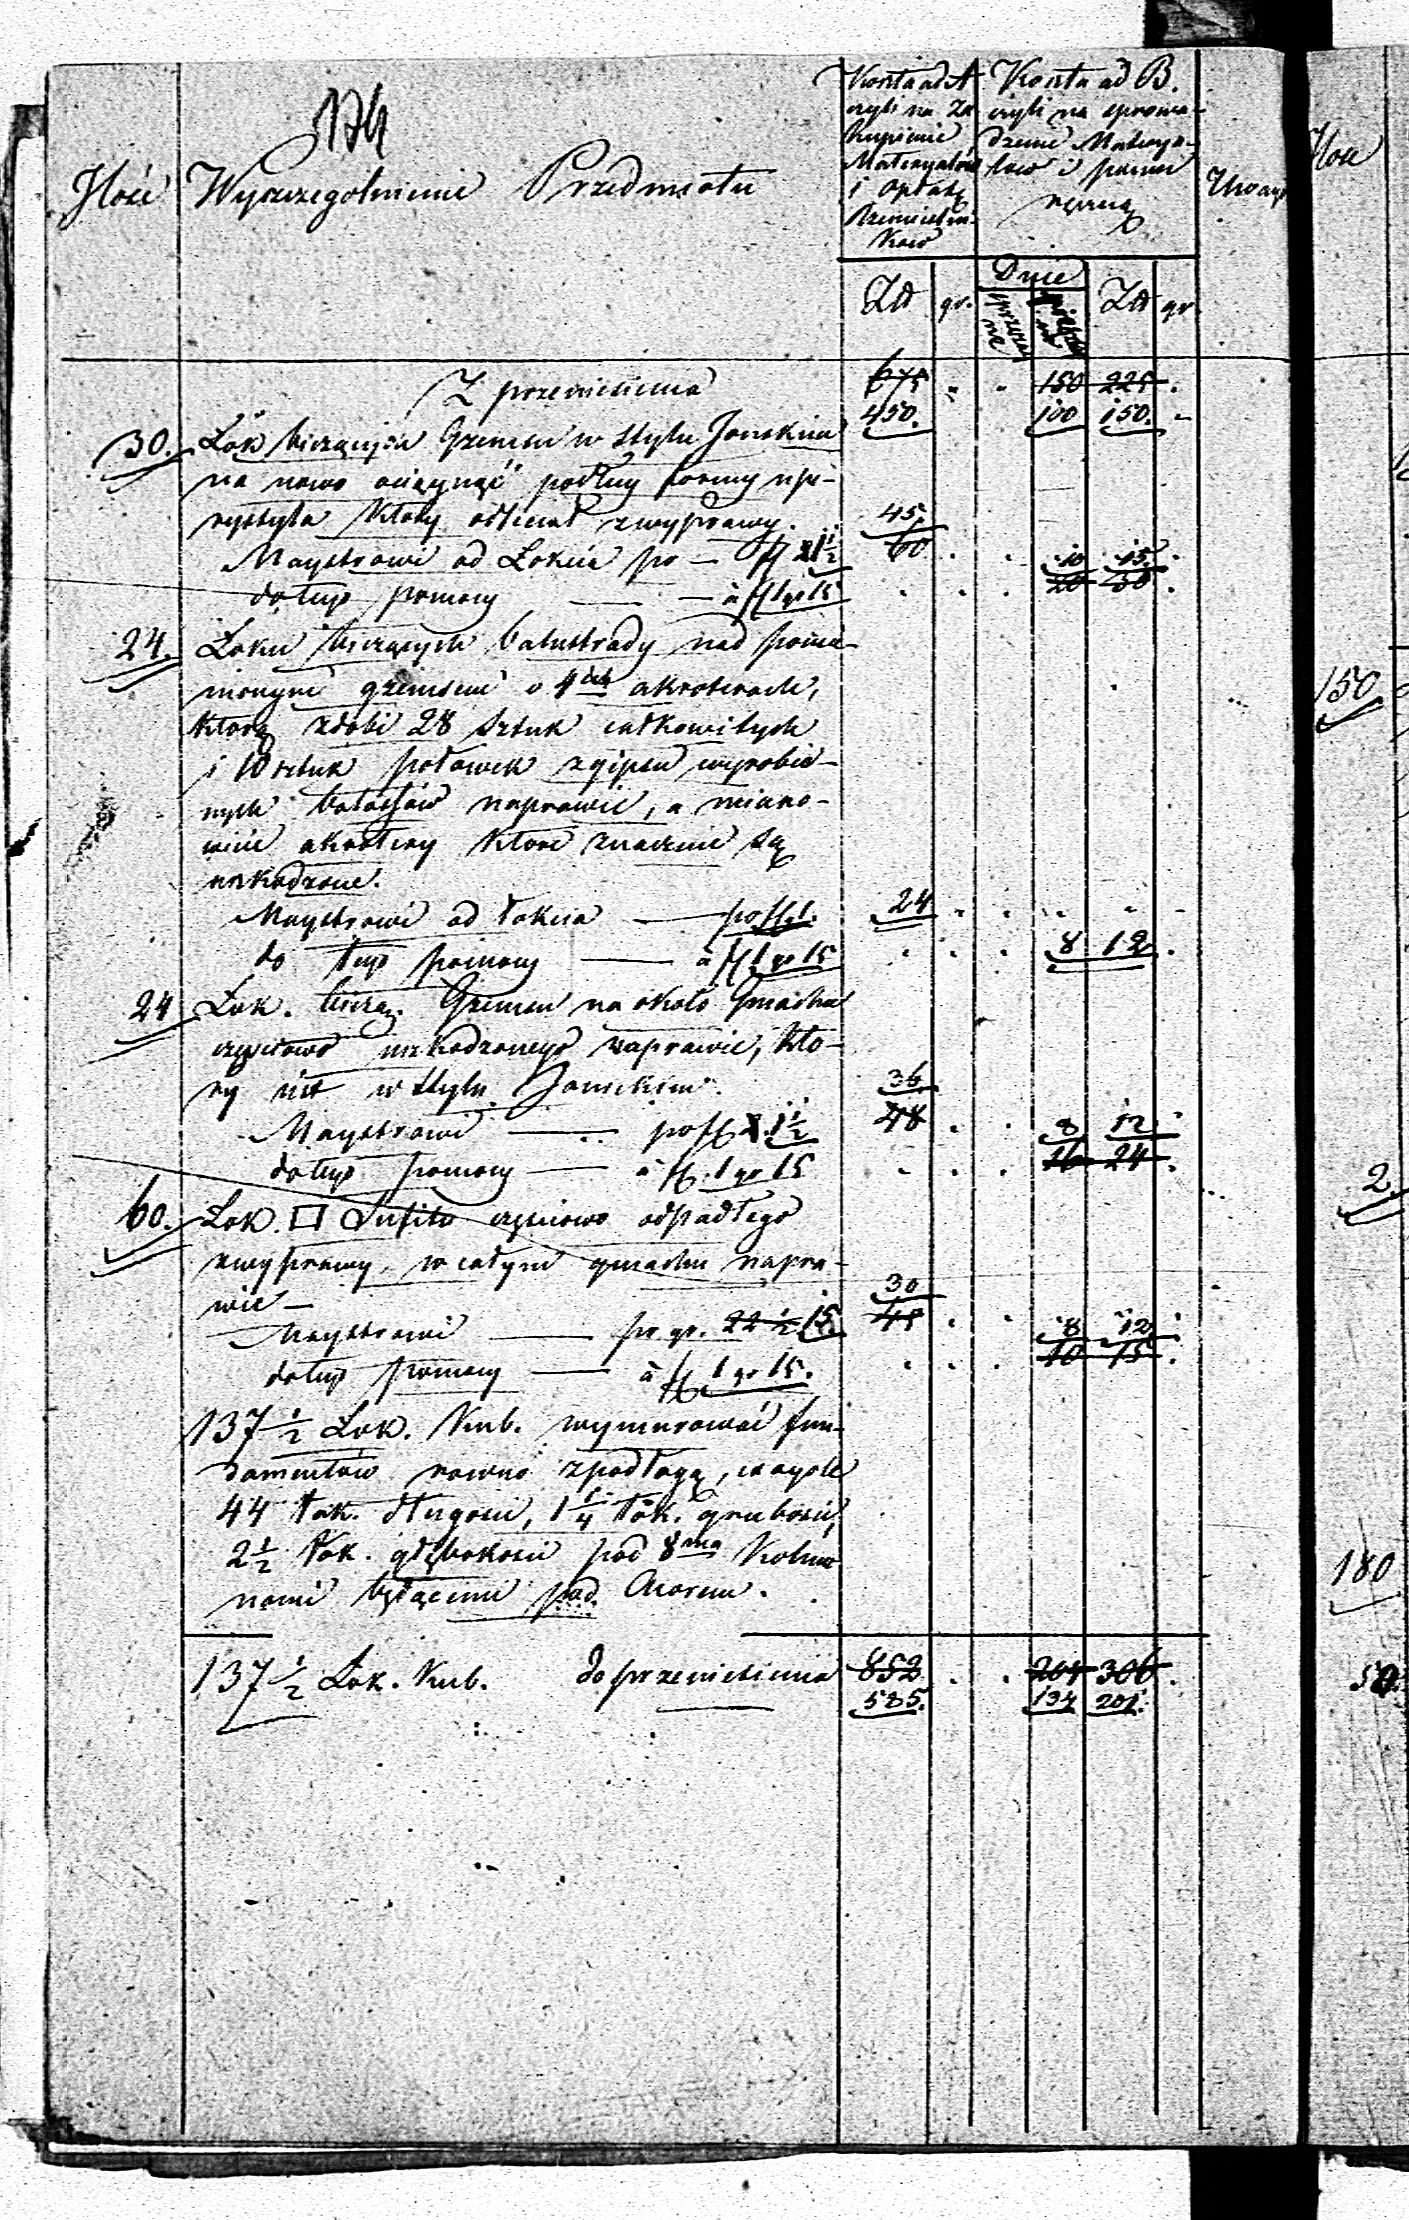 Ilość
Wyszczegolnienie Przedmiotu
Koszta ad A
czyli na za
kupienie
Materyałów
i opłatę
Rzemieślni-
kow
Koszta ad B.
czyli na sprowa-
dzenie Materya-
łow i pomoc
ręczną
Uwagi
Zł gr. Dnie Zł gr
Z przeniesienia 675 150 225
450. 100 150.
30. Łok bieżących Gzemsu w stylu Jonskim
na nowo ociągnąć podług formy
który odleciał z wyprawy. 45.
Maystrowi od Łokcia po fl 2 1 1/2 60 10 15.
do tego pomocy à fl 1 gr 15 20 30
24. Łokci bieżących balustrady nad pomie-
nionym gzemsem o 4ch akroterach,
którą zdobi 28 sztuk całkowitych
i 10 sztuk połowek z gipsu wyrobio-
nych balasów naprawić, a miano-
wicie akrotery które znacznie są
uszkodzone.
Maystrowi od łokcia po fl. 1. 24
do tego pomocy à fl 1 gr 15 8 12
24 Łok. bieżą. Gzemsu na około Gmachu
częściowo uszkodzonego naprawić, któ-
ry jest w stylu Jonskim. 36
Maystrowi po fl 2. 1 1/2 48 8 12
do tego pomocy à fl. 1 gr 15 16 24
60. Łok. □ Sufitu częściowo odpadłego
z wyprawy, w całym gmachu napra-
wić 30
Maystrowi po gr. 22 1/2 15. 45 8 12
do tego pomocy à fl 1 gr 15. 10 15
137 1/2 Łok. Kub. wymurować fun-
damentów równo z podłogą, w ogóle
44 łok. długości, 1 1/4 łok. grubości,
2 1/2 łok. głębokości pod 8ma Kolum
nami będącemi pod Chorem.
137 1/2 Łok. Kub. do przeniesienia 852 204 306
585. 134 201.
Ilość
150
2
180
50.